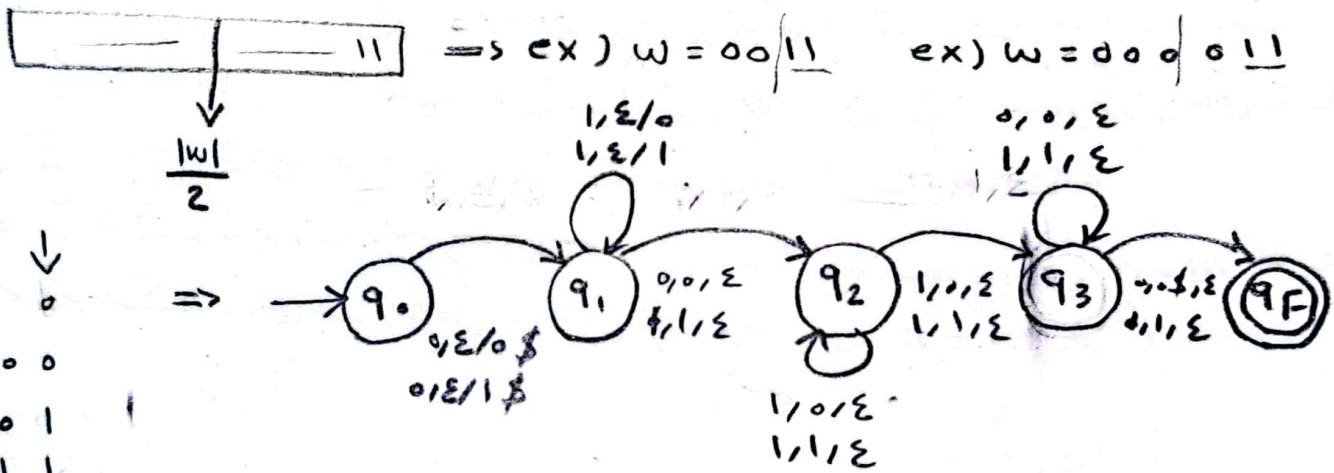 11 => ex) w = 00|11 ex) w = 000|011
|w|
2
1,ε/0
1,ε/1
0,0,ε
1,1,ε
0
=>
q0
q1
q2
q3
qF
0,ε/0$
0,ε/1$
0,0,ε
1,ε
1,0,ε
1,1,ε
$,ε
1,ε
1,0,ε
1,1,ε
00
01
11